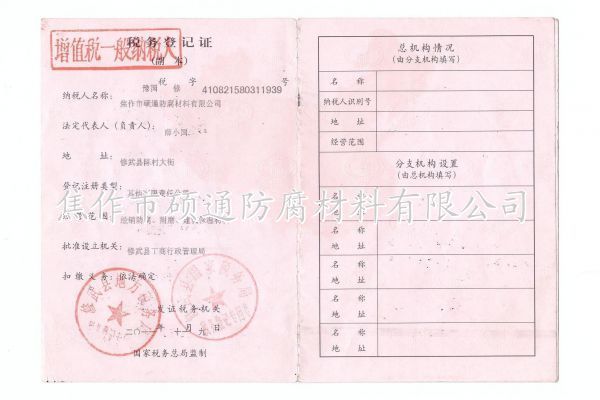 增值税一般纳税人
税务登记证
(副 本)
税 字 号
豫国 修 410821580311939
纳税人名称:
焦作市硕通防腐材料有限公司
法定代表人(负责人): 薛小国
地 址:
修武县郇村大街
登记注册类型:
其他有限责任公司
焦作市硕通防腐材料有限公司
经营范围:
批准设立机关:
修武县工商行政管理局
扣缴义务: 依法确定
发证税务机关
二〇一一年十月九日
国家税务总局监制
修武县地方税务局
总机构情况
(由分支机构填写)
名 称
纳税人识别号
地 址
经营范围
分支机构设置
(由总机构填写)
名 称
地 址
名 称
地 址
名 称
地 址
名 称
地 址
名 称
地 址